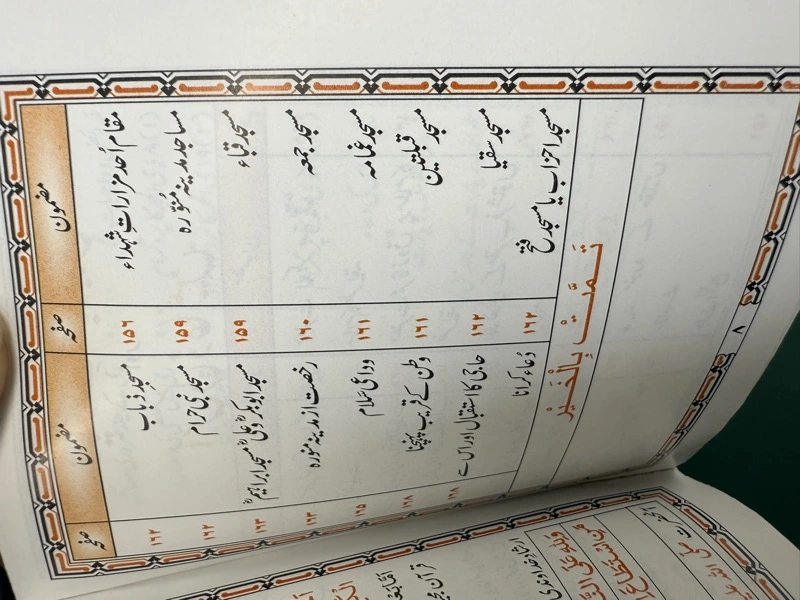 مضمون صفحہ مضمون صفحہ
مقام اُحد مزاراتِ شہداء ۱۵۶ مسجد ذباب ۱۶۲
مساجد مدینہ منورہ ۱۵۹ مسجد بنی حرام ۱۶۲
مسجد قباء ۱۵۹ مسجد ابوبکرؓ و علیؓ مسجد ابراہیمؓ ۱۶۳
مسجد جمعہ ۱۶۰ رخصت از مدینہ منورہ ۱۶۳
مسجد غمامہ ۱۶۱ وداعی سلام ۱۶۵
مسجد قبلتین ۱۶۱ وطن کے قریب پہنچنا ۱۶۸
مسجد سقیا ۱۶۲ حاجی کا استقبال اور اس سے ۱۶۸
مسجد احزاب یا مسجد فتح ۱۶۲ دُعاء کرانا
تَمَّتْ بِالْخَيْر
۸